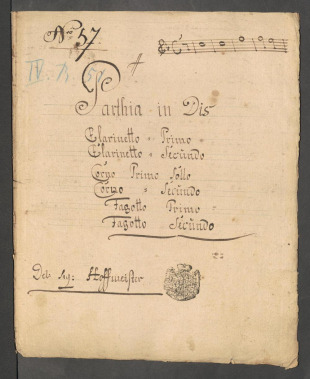 Nro 57
IV. B. 5
Parthia in Dis
Clarinetto Primo
Clarinetto Secundo
Corno Primo Sollo
Corno Secundo
Fagotto Primo
Fagotto Secundo
Del Sig: Hoffmeister